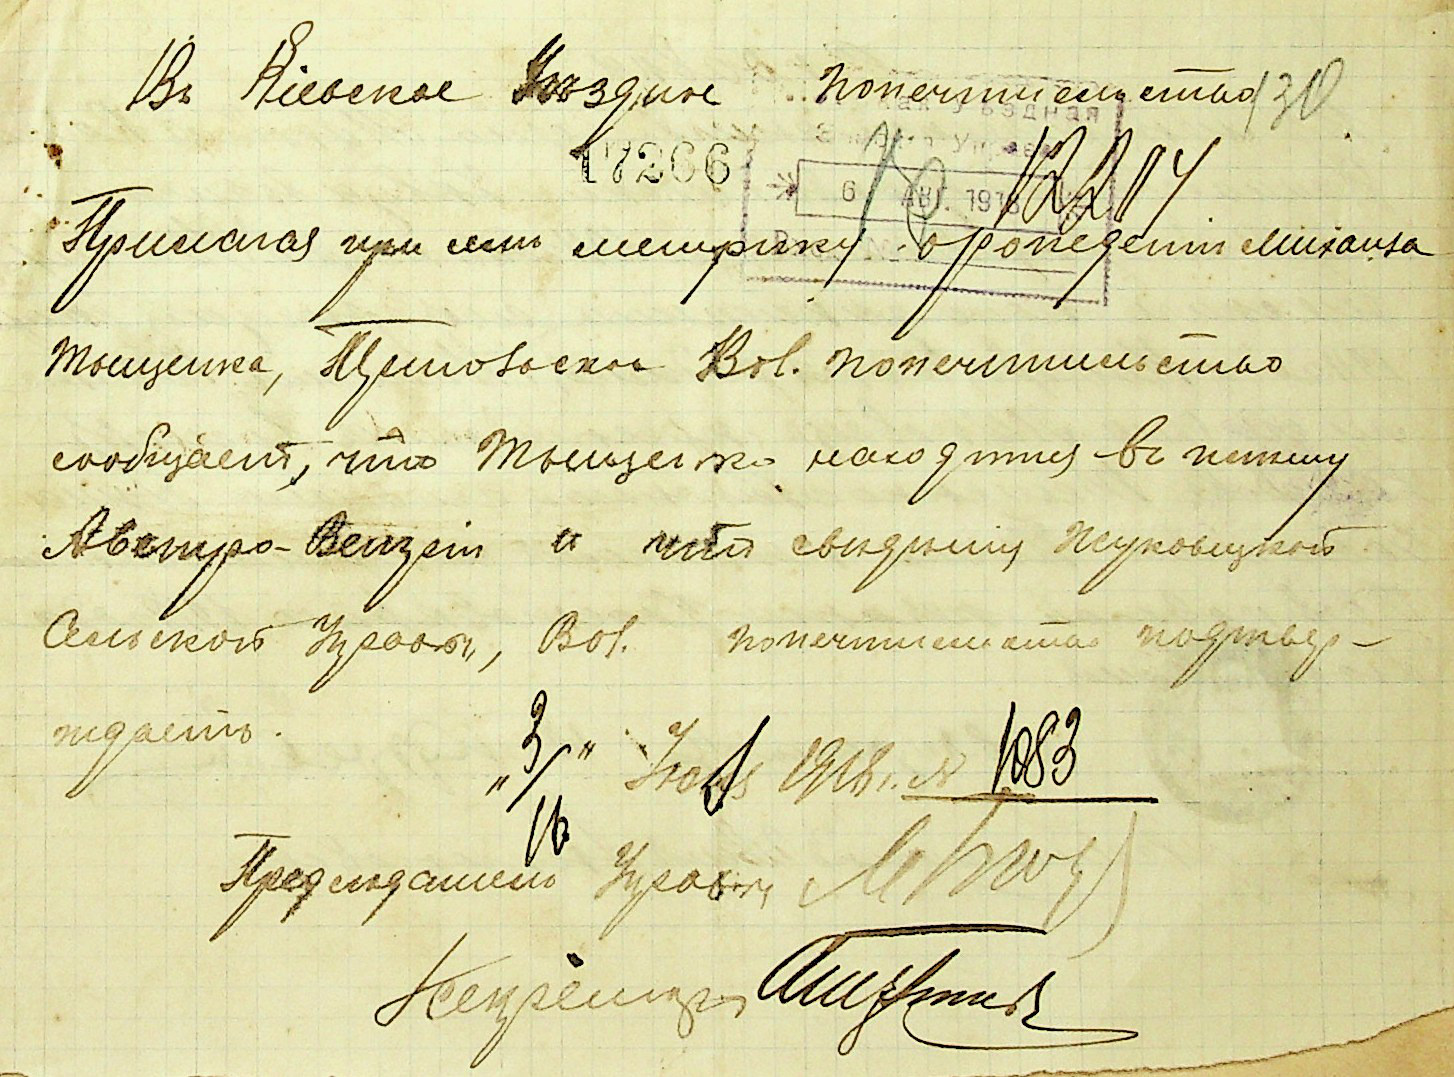 Въ Кіевское Уѣздное попечительство 130
17266
уѣздная
6 АВГ. 1918
Прилагая при семъ метрику о рожденіи Михаила
Тыщенка, Вол. попечительство
сообщает, что Тыщенко находится въ плену
Австро-Венгріи и что свѣденія Жуковецкой
Сельской Управы, Вол. попечительство подтвер-
ждаетъ.
„3/16" 1918 г. № 1083
Предсѣдатель Управы
Секретарь